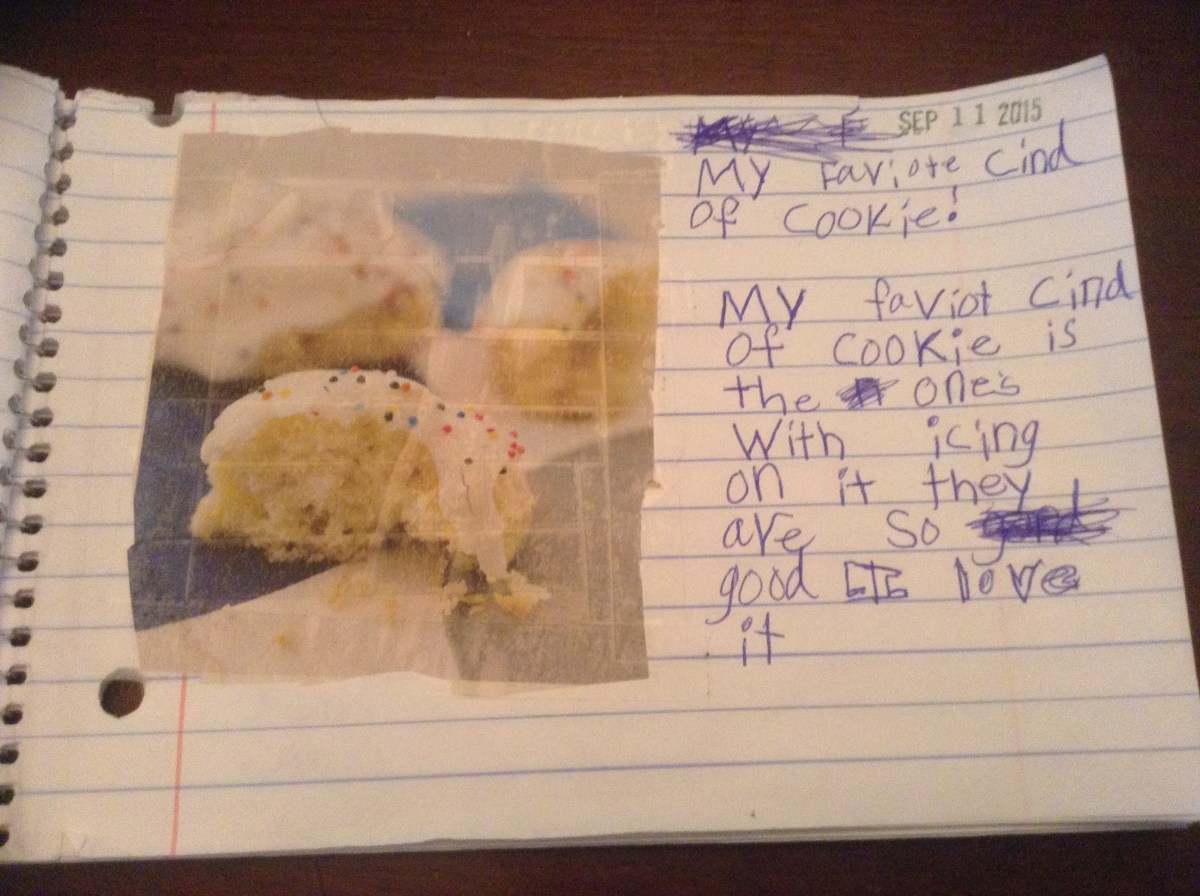 SEP 11 2015
My Faviote Cind
Of Cookie!
My faviot Cind
Of Cookie is
the one's
With icing
on it they
are so
good I love
it